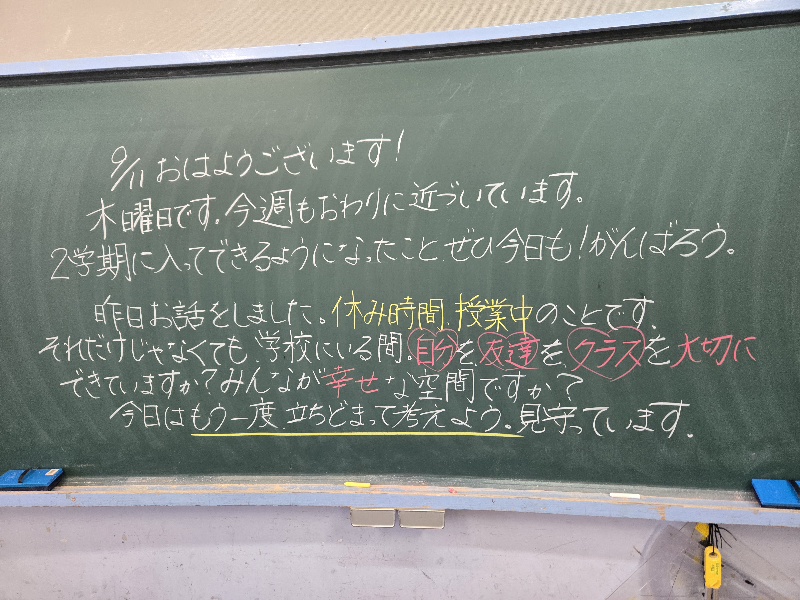 9/11 おはようございます!
木曜日です.今週もおわりに近づいています。
2学期に入ってできるようになったこと.ぜひ今日も!がんばろう。
昨日お話をしました。休み時間.授業中のことです.
それだけじゃなくても学校にいる間.自分を友達をクラスを大切に
できていますか?みんなが幸せな空間ですか?
今日はもう一度.立ちどまって考えよう。見守っています.